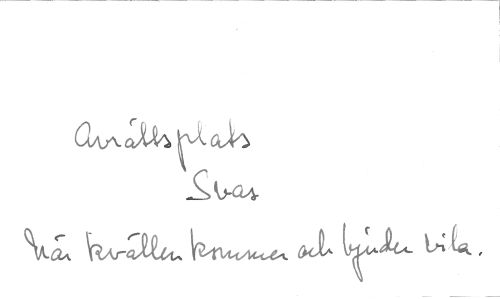 Avrättsplats
Svas
När kvällen kommer och bjuder vila.